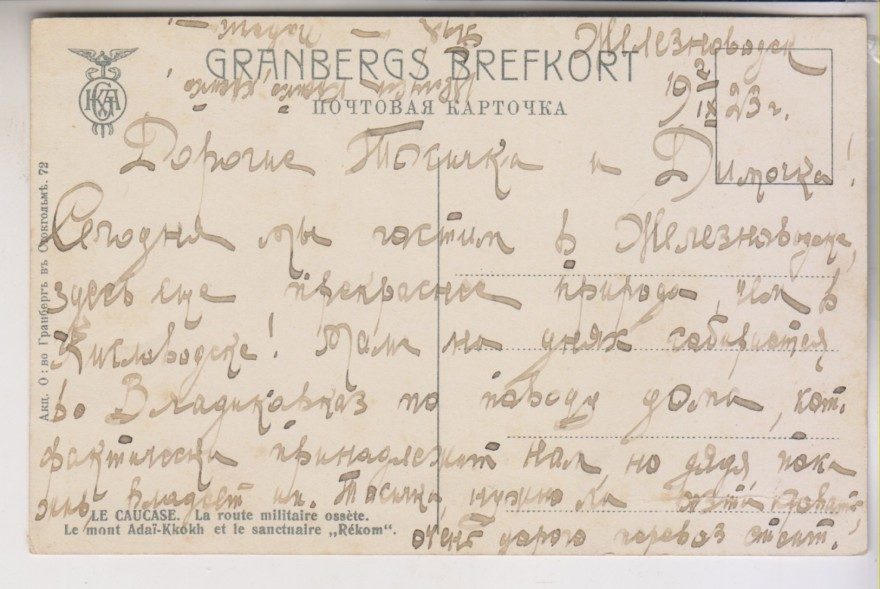 Железноводск
GRANBERGS BREFKORT
ПОЧТОВАЯ КАРТОЧКА
2/IX 1923 г.
Дорогие Тосичка и Димочка!
Сегодня мы гостим в Железноводске,
здесь еще прекраснее природа, чем в
Кисловодске! Мама на днях собирается
во Владикавказ по поводу дома, кот.
фактически принадлежит нам, но дядя пока
владеет им. Тосичка, нужно
очень дорого перевоз стоит.
LE CAUCASE. La route militaire ossète.
Le mont Adaï-Kkokh et le sanctuaire „Rékom“.
Акц. О:во Гранбергъ въ Стокгольмѣ. 72